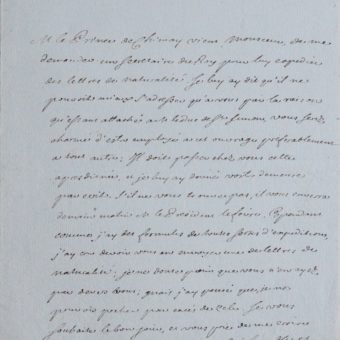 M. le Prince de Chimay vient, Monsieur, de me
demander un secretaire du Roy pour luy expedier
des lettres de naturalité. Je luy ay dit qu'il ne
pouvoit mieux s'adresser qu'a vous par la raison
qu'estant attaché a M. le duc de St Simon vous serez
charmé d'estre employé a cet ouvrage préferablement
a tout autre; Il doit passer chez vous cette
apresdinée, et je luy ay donné vostre demeure
par ecrit. S'il ne vous trouve pas, il vous enverra
demain matin M. le President le
comme j'ay des formules de toutes sortes d'expeditions,
j'ay cru devoir vous en envoyer une de lettres de
naturalité; je ne doute point que vous n'en ayez
par devers vous; mais j'ay pensé que je ne
pouvois pecher par excés de zele. Je vous
souhaite le bon jour, et vous prie de me croire